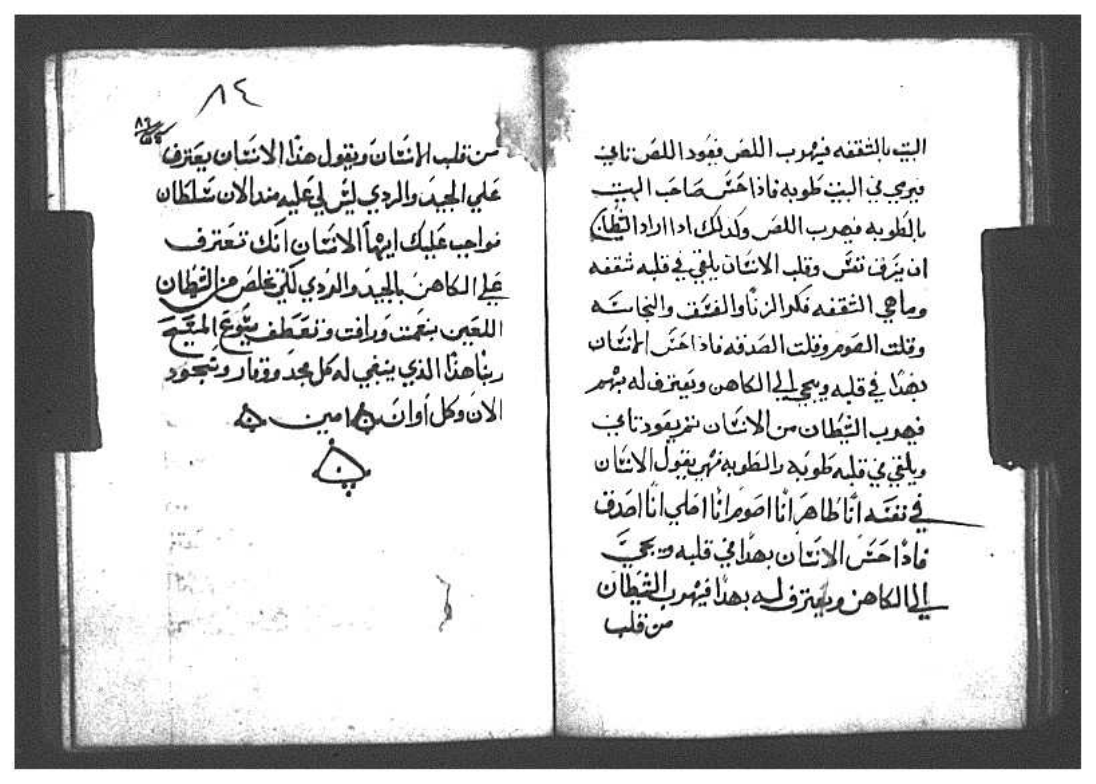 البيت بالشقفه فيهرب اللص فيعود اللص تاني
فيرمي في البيت طوبه فاذا حس صاحب البيت
بالطوبه فيهرب اللص وكدلك ادا اراد الشيطان
ان يسرف نفس وقلب الانسان يلقي في قلبه شقفه
وماهي الشقفه فكر الزنا والفسق والنجاسه
وقلت الصوم وقلت الصدقه فاذا حس الانسان
بهذا في قلبه ويجي الي الكاهن ويعترف له بهم
فيهرب الشيطان من الانسان تم يعود تاني
ويلقي في قلبه طوبه والطوبه فهي يقول الانسان
في نفسه انا طاهر انا اصوم انا اصلي انا اصدق
فاذا حس الانسان بهدا في قلبه ويجي
الي الكاهن ويعترف له بهذا فيهرب الشيطان
من قلب
٨٤
من قلب الانسان ويقول هذا الانسان يعترف
علي الجيد والردي ليس لي عليه مند الان سلطان
فواجب عليك ايها الانسان انك تعترف
علي الكاهن بالجيد والردي لكي تخلص من الشيطان
اللعين بنعمت ورافت وتعطف يسوع المسيح
ربنا هذا الذي ينبغي له كل مجد ووقار وسجود
الان وكل أوان امين